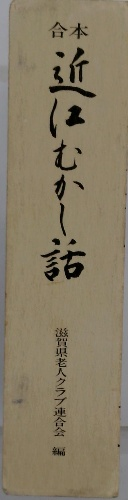 合本
近江むかし話
滋賀県老人クラブ連合会 編